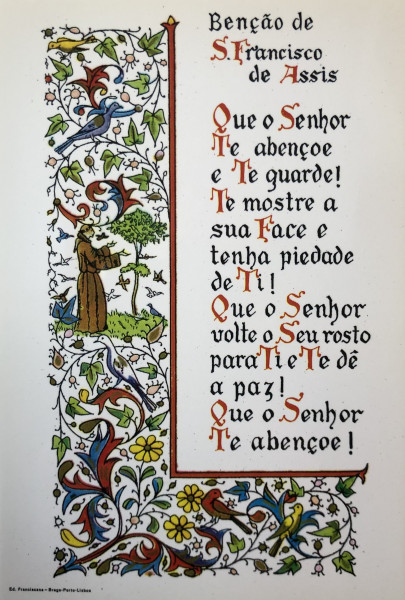 Benção de
S. Francisco
de Assis
Que o Senhor
Te abençoe
e Te guarde!
Te mostre a
sua Face e
tenha piedade
de Ti!
Que o Senhor
volte o Seu rosto
para Ti e Te dê
a paz!
Que o Senhor
Te abençoe!
Ed. Franciscana - Braga-Porto-Lisboa